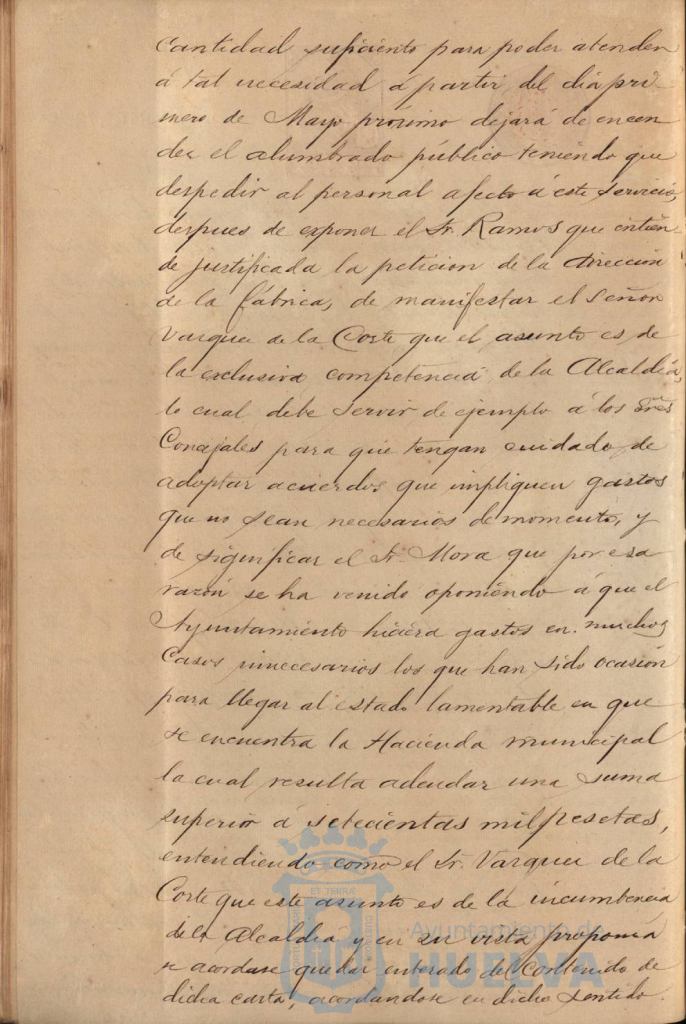 cantidad suficiente para poder atender
á tal necesidad á partir del dia pri-
mero de Mayo próximo dejará de encen
der el alumbrado público teniendo que
despedir al personal afecto á este servicio,
despues de exponer el Sr. Ramos que entien
de justificada la peticion de la direccion
de la fábrica, de manifestar el Señor
Vazquez de la Corte que el asunto es de
la exclusiva competencia de la Alcaldia,
lo cual debe servir de ejemplo á los Sres
Concejales para que tengan cuidado de
adoptar acuerdos que impliquen gastos
que no sean necesarios de momento, y
de significar el Sr. Mora que por esa
razón se ha venido oponiendo á que el
Ayuntamiento hiciera gastos en muchos
casos innecesarios los que han sido ocasión
para llegar al estado lamentable en que
se encuentra la Hacienda municipal
la cual resulta adeudar una suma
superior á setecientas mil pesetas,
entendiendo como el Sr. Vazquez de la
Corte que este asunto es de la incumbencia
de la Alcaldia y en su vista proponia
se acordase quedar enterado del contenido de
dicha carta, acordandose en dicho sentido.
ET TERRÆ
Ayuntamiento de
HUELVA